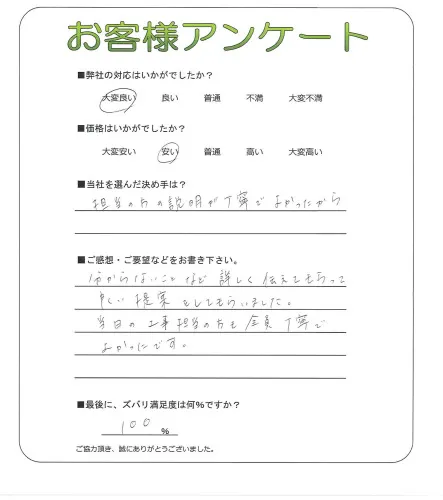 お客様アンケート
■弊社の対応はいかがでしたか？
大変良い 良い 普通 不満 大変不満
■価格はいかがでしたか？
大変安い 安い 普通 高い 大変高い
■当社を選んだ決め手は？
担当の方の説明が丁寧でよかったから
■ご感想・ご要望などをお書き下さい。
分からないことなど詳しく伝えてもらって
提案をしてもらいました。
当日の工事担当の方も全員丁寧で
よかったです。
■最後に、ズバリ満足度は何%ですか？
100 %
ご協力頂き、誠にありがとうございました。